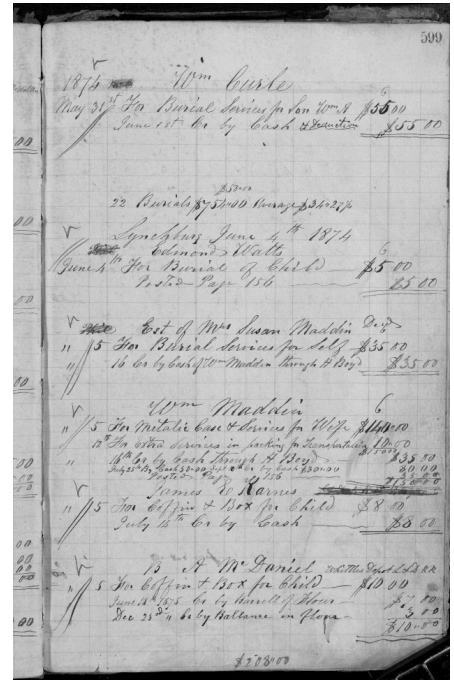 599
1874 Wm Curle
6
May 31st For Burial Services for Son Wm A $55 00
June 1st Cr by Cash & Deduction $55 00
$50.00
22 Burials $754.00 Average $34.27
Lynchburg June 4th 1874
Edmond Watts 6
June 4th For Burial of Child $5 00
Posted Page 156 $5 00
Est of Mrs Susan Maddin Decd
6
" 5 For Burial Services for Self $35 00
" 16 Cr by Cash of Wm Maddin through A Boyd $35 00
Wm Maddin 6
" 5 For Metalic Case & Services for Wife $140 00
For Extra Services in packing for Transportation 10 00
$150 00
16th Cr by Cash through A Boyd $35 00
July 25th By Cash Cr by Cash $30.00
Posted Page 156
James Karnes
" 5 For Coffin & Box for Child $8 00
July 14th Cr by Cash $8 00
B A McDaniel Depot
" 5 For Coffin & Box for Child $10 00
June 1875 Cr by Barrell of Flour $7 00
Dec 23rd " Cr by Ballance in flour 3 00
$10 00
$208.00